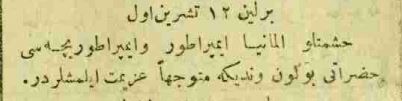 برلين ١٢ تشرين اول
حشمتلو المانيا ايمپراطور وايمپراطوريچه سى
حضراتى بوكون ونديكه متوجهاً عزيمت ايلمشلردر.